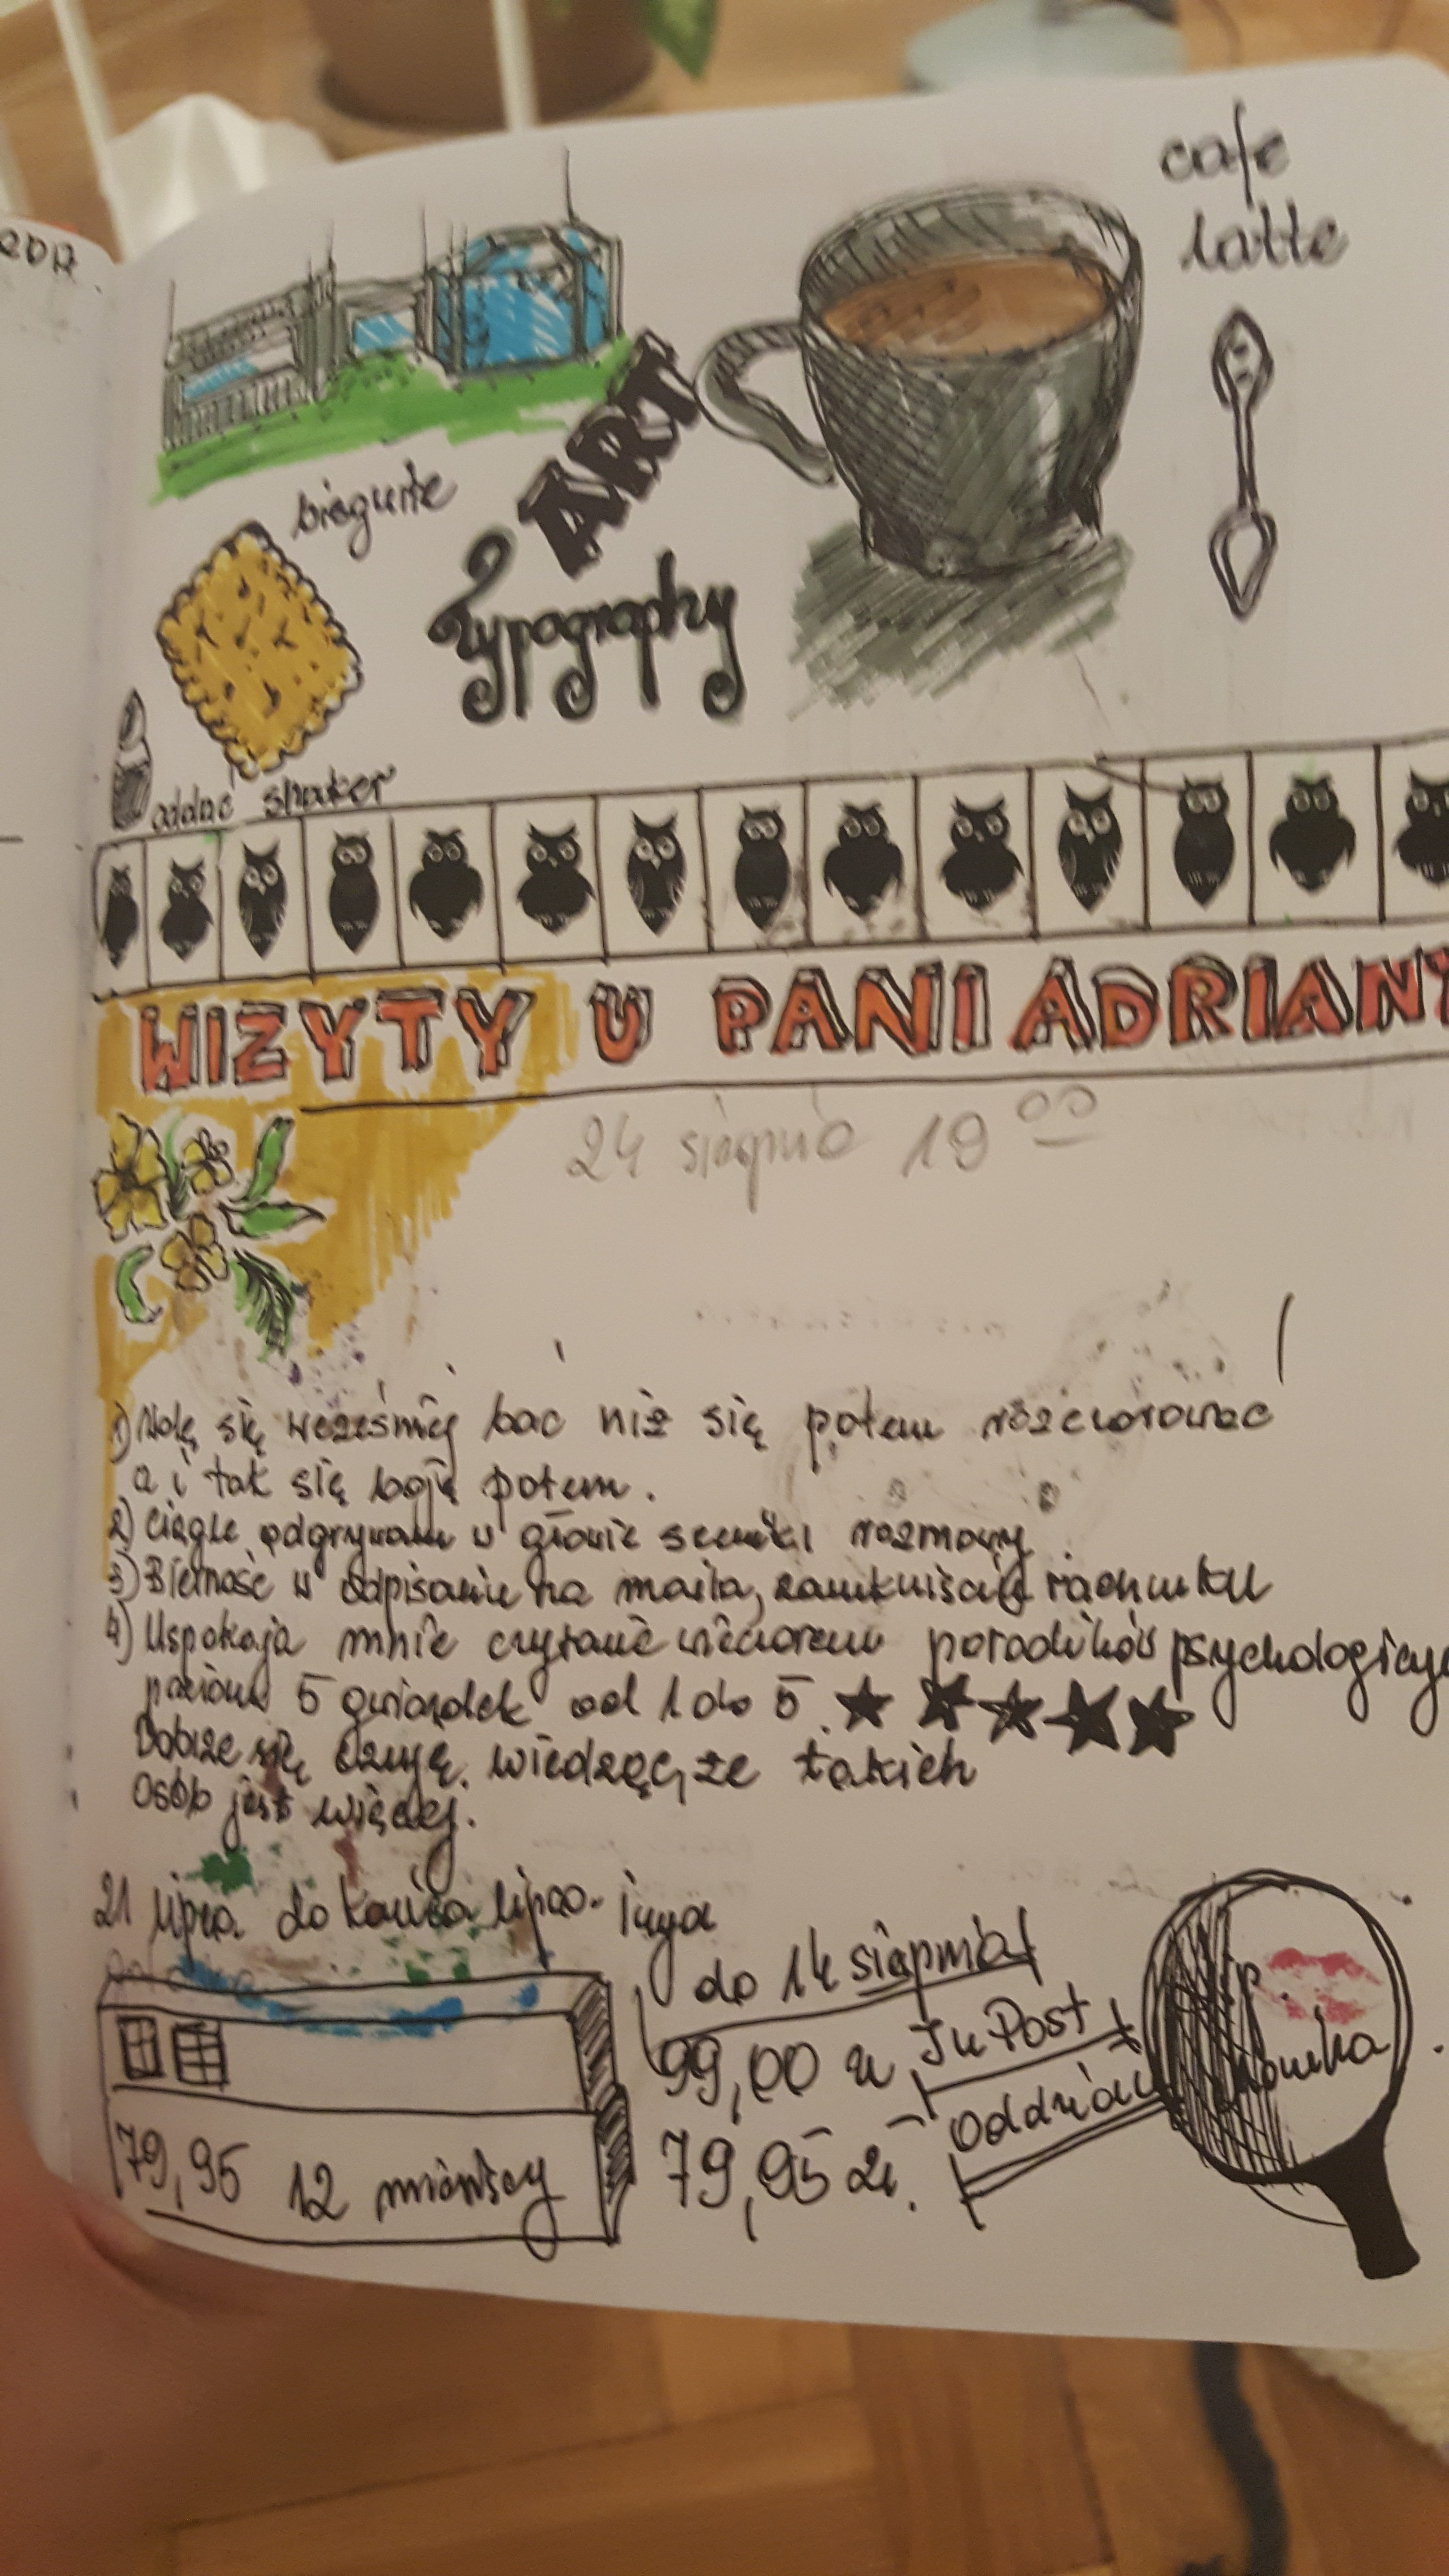 2017
cafe
latte
ART
Typography
oddać shaker
WIZYTY U PANI ADRIANY
24 sierpnia 19 00
1) Wolę się wcześniej bać niż się potem rozczarować
a i tak się boję potem.
2) Ciągle odgrywam w głowie scenki rozmowy
3) Bierność w odpisaniu na maila, zamknięciu rachunku
4) Uspokaja mnie czytanie wieczorem poradników psychologicy
poziom 5 gwiazdek od 1 do 5.
Dobrze się czuję, wiedząc, że takich
osób jest więcej.
21 lipca do końca lipca
do 14 sierpnia
99,00 zł InPost
79,95 zł.
79,95 12 miesięcy